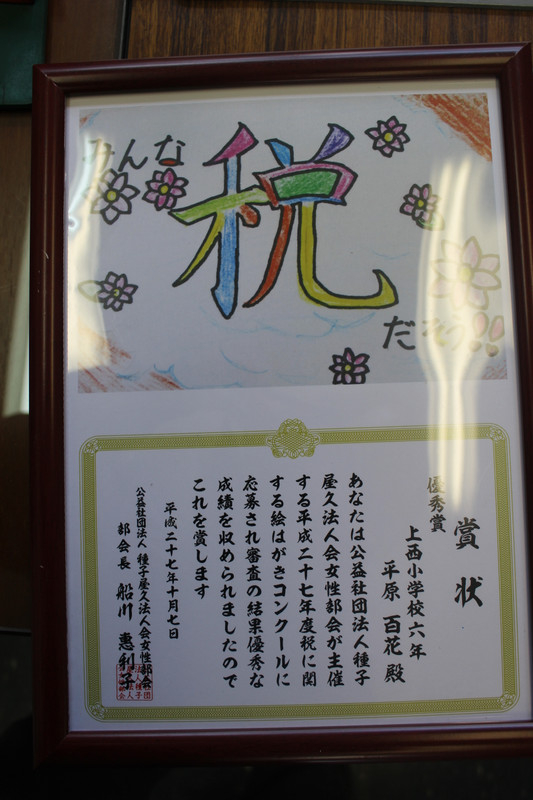 みんな
税
だそう!!
賞状
優秀賞
上西小学校六年
平原 百花 殿
あなたは公益社団法人種子
屋久法人会女性部会が主催
する平成二十七年度税に関
する絵はがきコンクールに
応募され審査の結果優秀な
成績を収められましたので
これを賞します
平成二十七年十月七日
公益社団法人 種子屋久法人会女性部会
部会長 船川 惠利子